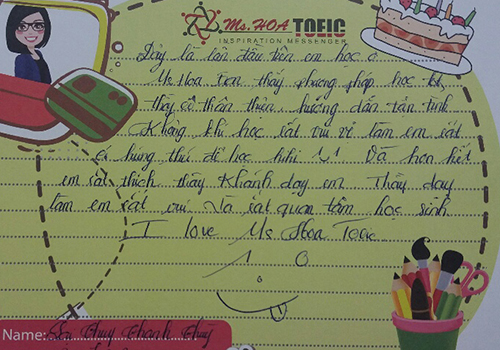 Ms. HOA TOEIC
INSPIRATION MESSENGER
Đây là lần đầu tiên em học ở
Ms Hoa. Em thấy phương pháp học tốt,
thầy cô thân thiện hướng dẫn tận tình
Không khí học rất vui vẻ làm em rất
có hứng thú để học hihi ^^. Và hơn hết
em rất thích thầy Khánh dạy em. Thầy dạy
làm em rất vui. Và rất quan tâm học sinh
I love Ms Hoa Toeic.
Name: Thuy Thanh Thuý